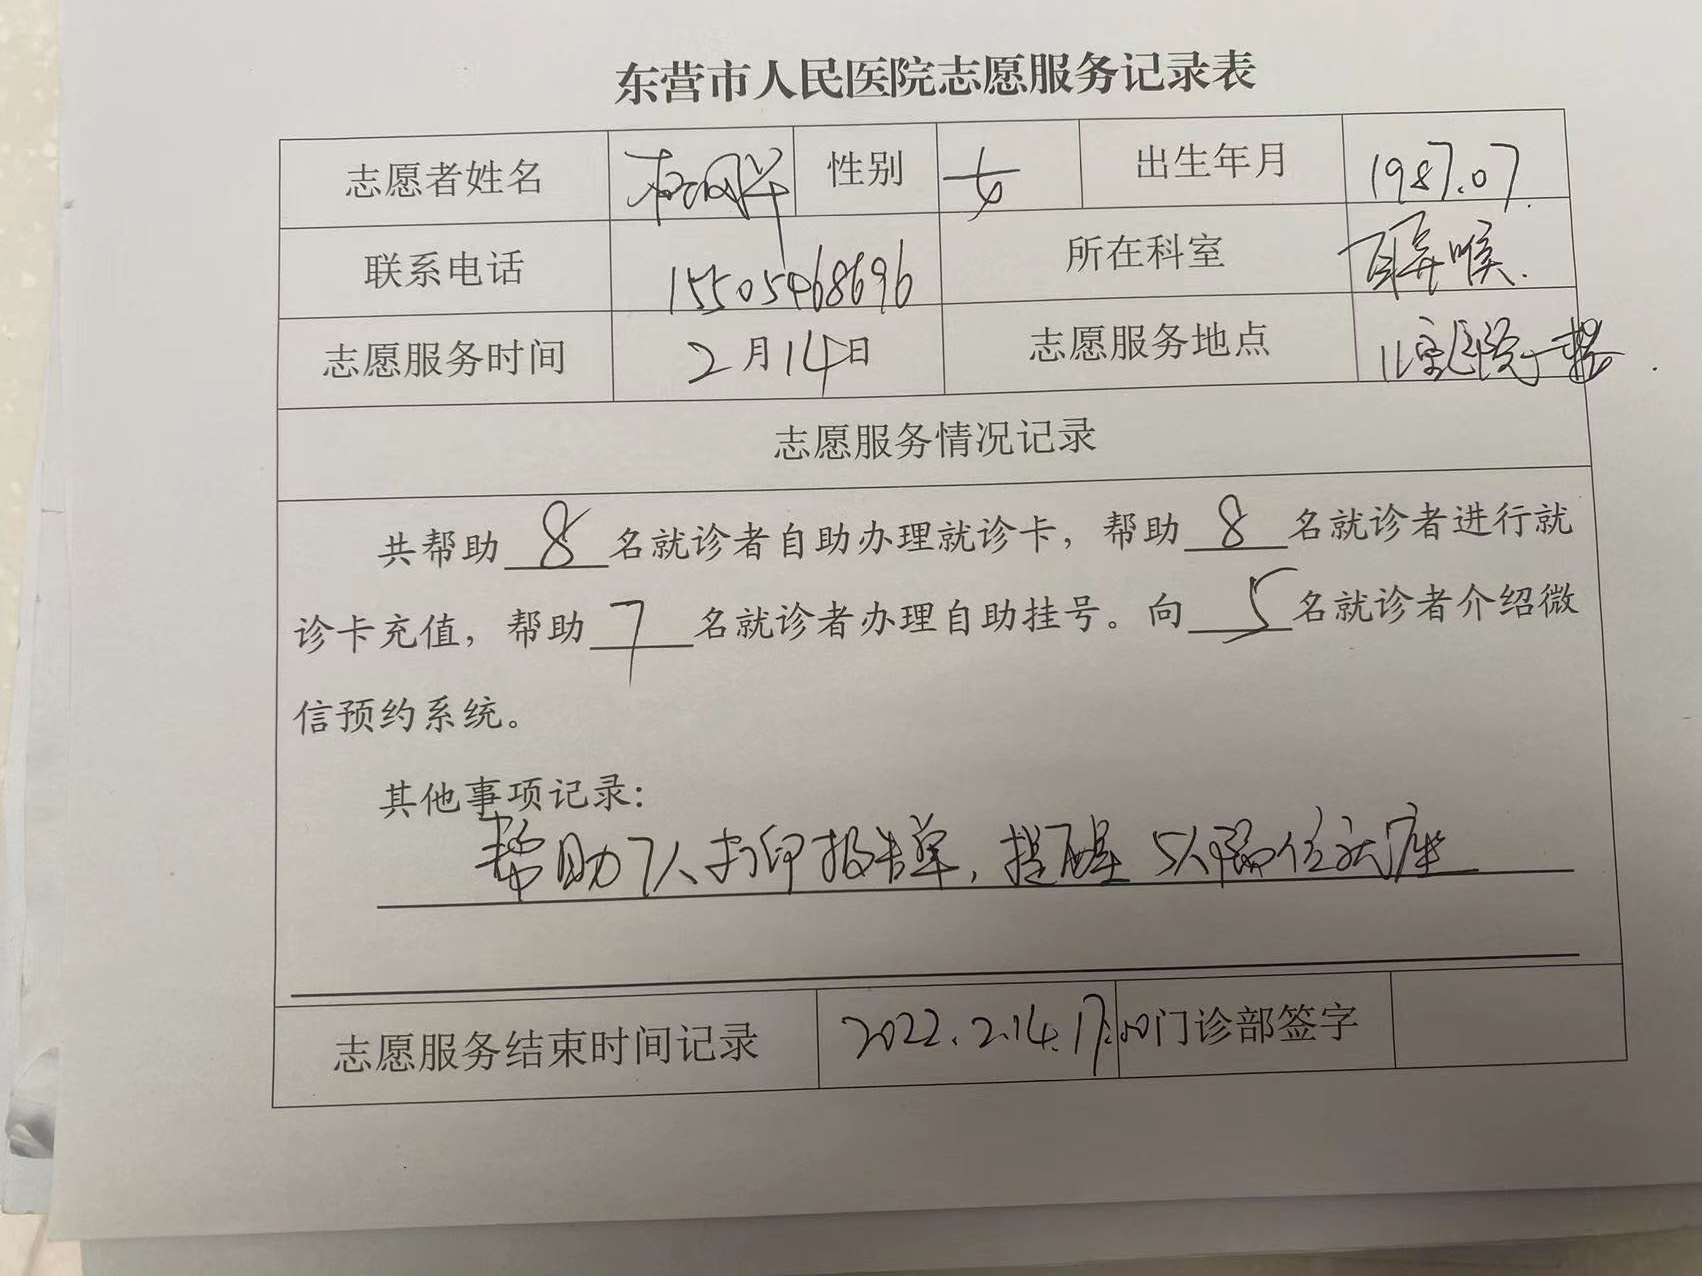 东营市人民医院志愿服务记录表
志愿者姓名 性别 女 出生年月 1987.07
联系电话 15505468696 所在科室 耳鼻喉.
志愿服务时间 2月14日 志愿服务地点 儿童医院一楼.
志愿服务情况记录
共帮助8名就诊者自助办理就诊卡，帮助8名就诊者进行就
诊卡充值，帮助7名就诊者办理自助挂号。向5名就诊者介绍微
信预约系统。
其他事项记录：
帮助7人打印报告单，提醒5人隔位就座
志愿服务结束时间记录 2022.2.14.17:00 门诊部签字